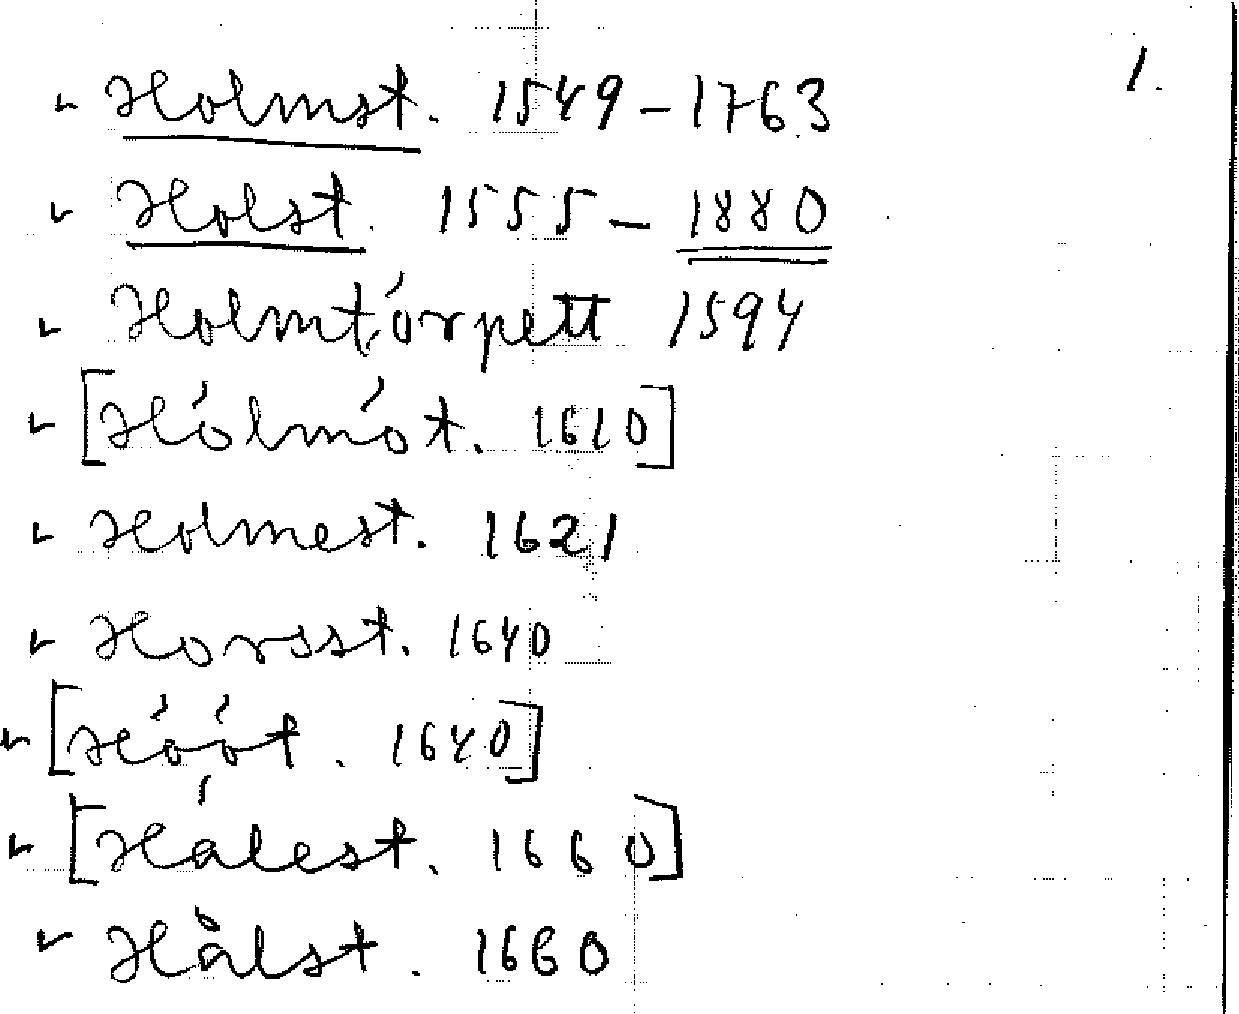 1.
Holmst. 1549-1763
Holst. 1555-1880
Holmtórpett 1594
[Hólmót. 1610]
Holmest. 1621
Horsst. 1640
[Hóót. 1640]
[Hálest. 1660]
Hålst. 1660